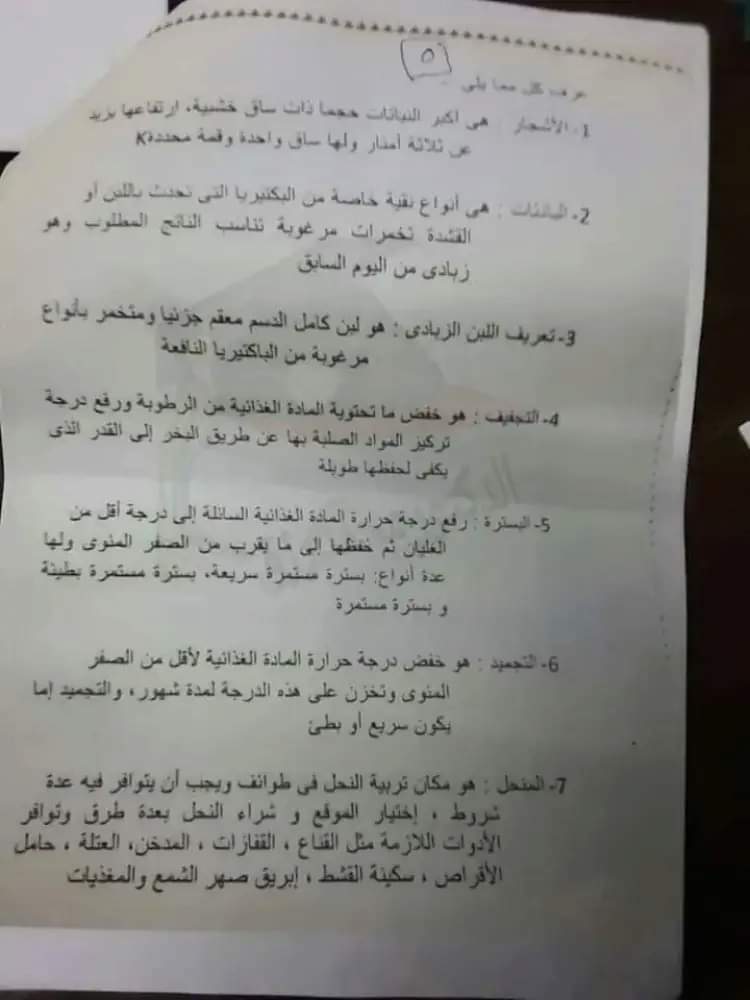 ٥
عرف كل مما يلى
1- الأشجار : هى أكبر النباتات حجما ذات ساق خشبية، ارتفاعها يزيد
عن ثلاثة أمتار ولها ساق واحدة وقمة محددةK
2- البادئات : هى أنواع نقية خاصة من البكتيريا التى تحدث باللبن أو
القشدة تخمرات مرغوبة تناسب الناتج المطلوب وهو
زبادى من اليوم السابق
3- تعريف اللبن الزبادى : هو لبن كامل الدسم معقم جزئيا ومتخمر بأنواع
مرغوبة من الباكتيريا النافعة
4- التجفيف : هو خفض ما تحتوية المادة الغذائية من الرطوبة ورفع درجة
تركيز المواد الصلبة بها عن طريق البخر إلى القدر الذى
يكفى لحفظها طويلة
5- البسترة : رفع درجة حرارة المادة الغذائية السائلة إلى درجة أقل من
الغليان ثم خفظها إلى ما يقرب من الصفر المئوى ولها
عدة أنواع: بسترة مستمرة سريعة، بسترة مستمرة بطيئة
و بسترة مستمرة
6- التجميد : هو خفض درجة حرارة المادة الغذائية لأقل من الصفر
المئوى وتخزن على هذه الدرجة لمدة شهور، والتجميد إما
يكون سريع أو بطئ
7- المنحل : هو مكان تربية النحل فى طوائف ويجب أن يتوافر فيه عدة
شروط ، إختيار الموقع و شراء النحل بعدة طرق وتوافر
الأدوات اللازمة مثل القناع ، القفازات ، المدخن، العتلة ، حامل
الأقراص ، سكينة القشط ، إبريق صهر الشمع والمغذيات